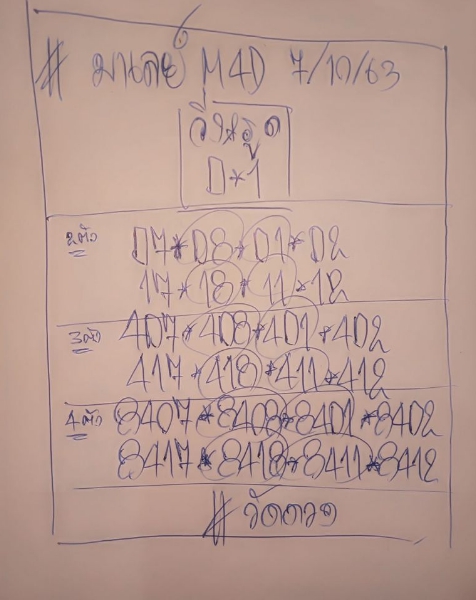 # มาเลย์ M4D 7/10/63
วิ่งรูด
0*1
2ตัว 07*08*01*02
17*18*11*12
3ตัว 407*408*401*402
417*418*411*412
4ตัว 8407*8408*8401*8402
8417*8418*8411*8412
# วัดดวง